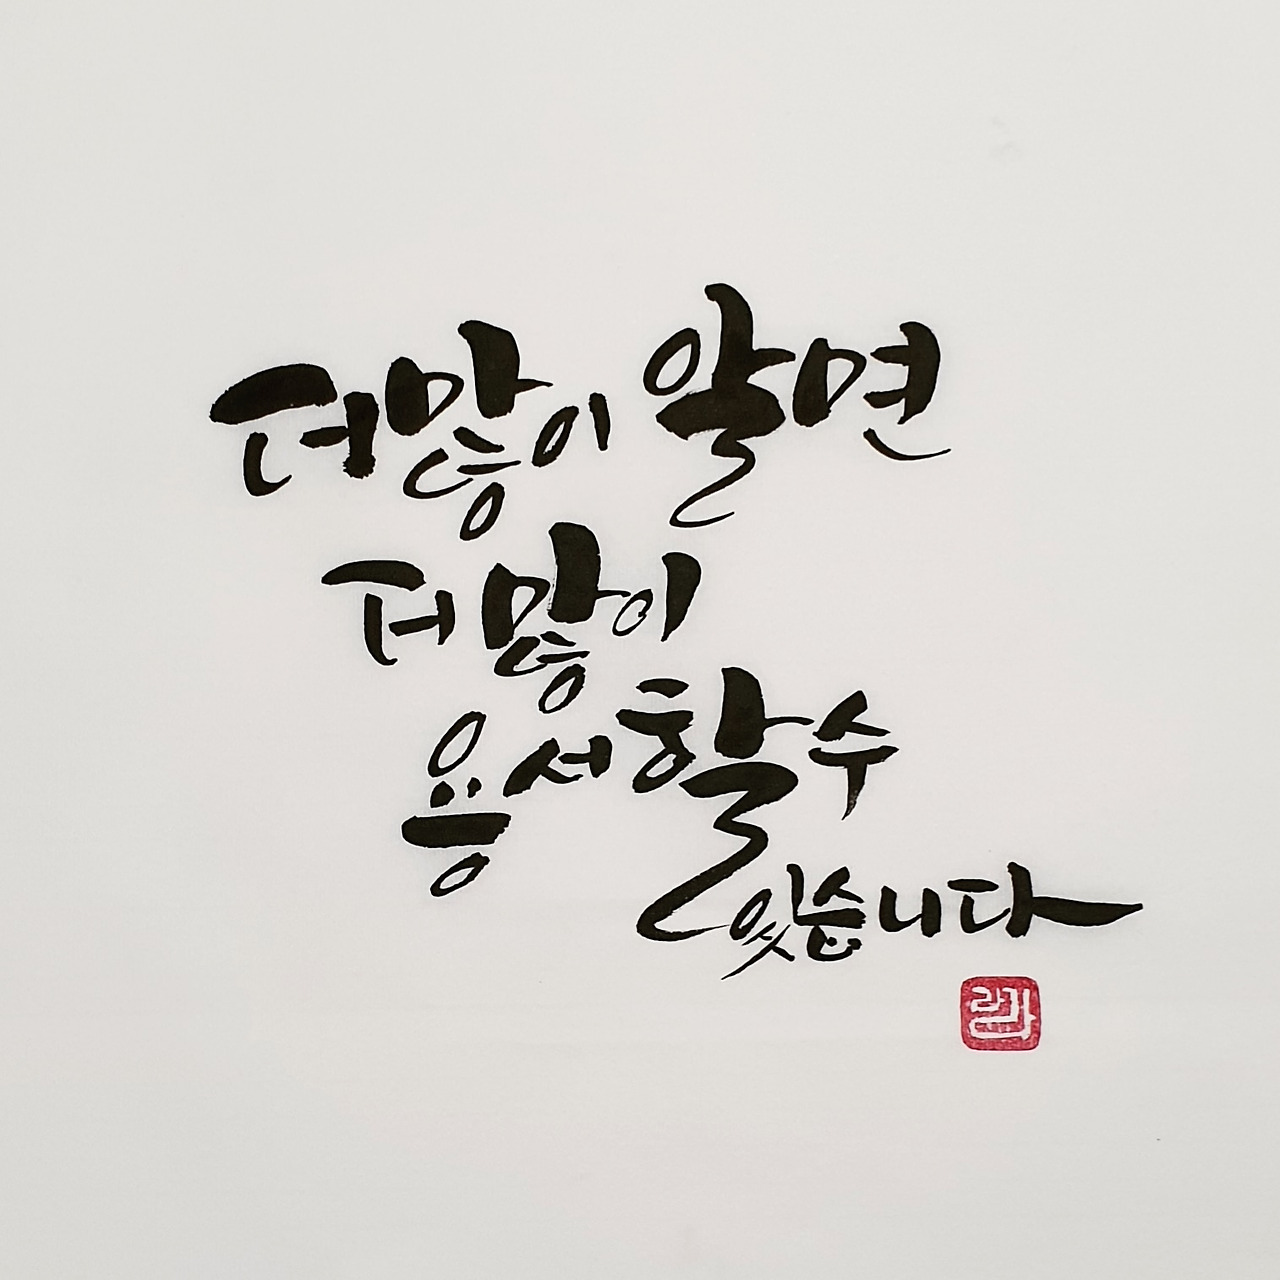 더 많이 알면
더 많이
용서할 수
있습니다